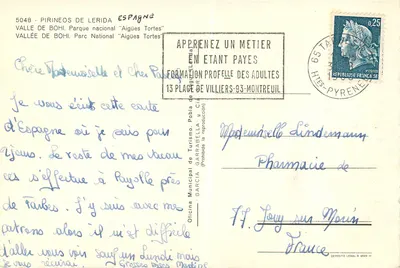 5048 - PIRINEOS DE LERIDA ESPAGNE
VALLE DE BOHI. Parque nacional "Aigües Tortes"
VALLÉE DE BOHI. Parc National "Aigües Tortes"
APPRENEZ UN METIER
EN ETANT PAYES
FORMATION PROFELLE DES ADULTES
13 PLACE DE VILLIERS-93-MONTREUIL
0,25
REPUBLIQUE FRANÇAISE
65 TARBES
Htes-PYRENEES
Chère Mademoiselle et Cher
Je vous écrit cette carte
d'Espagne où je suis pour
2 jours. Le reste de mes vacan
ces s'effectue à Payolle près
de Tarbes. J'y suis avec mes
patrons alors il m'est difficile
d'aller vous voir sauf un Lundi mais
je vous récrirai. Grosses bises Martine
Oficina Municipal de Turismo. Pobla de
GARCIA GARRABELLA y C
(Prohibida la reproducción)
Mademoiselle Lindemann
Pharmacie de
77 Jouy sur Morin
France